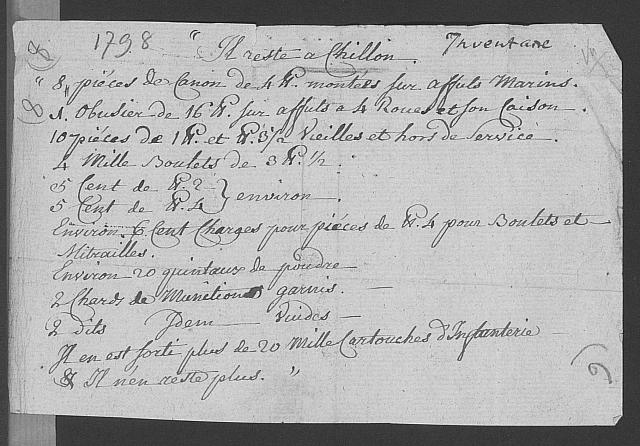 1798 " Il reste a Chillon. Inventaire
" 8,, piéces de Canon de 4 ℔. montées sur affuts Marins.
1. Obusier de 16 ℔. sur affuts a 4 Roues et son Caison.
10 piéces de 1 ℔. et ℔. 3/2 Vieilles et hors de service.
4 Mille Boulets de 3 ℔. ½.
5 Cent de ℔. 2 } environ.
5 Cent de ℔. 4
Environ 6 Cent Charges pour piéces de ℔. 4 pour Boulets et
Mitrailles.
Environ 20 quintaux de poudre
2 Chards de Munitions garnis. —
2 dits Idem — Vuides —
Il en est sorti plus de 20 Mille Cartouches d'Infanterie
& Il n'en reste plus. "